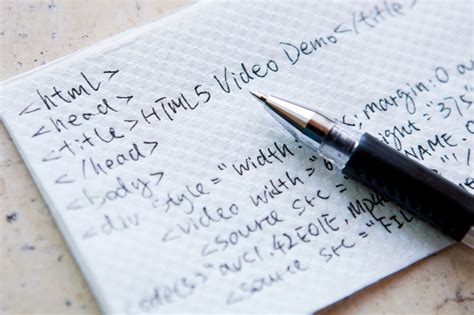 <html>
<head>
<title>HTML5 Video Demo</title>
</head>
<body>
<div style="width: margin:0 a
<video width="6 ight="3/6
<source src = NAME.
codecs="avc1.42E01E, MP4A
<source src ="FIL